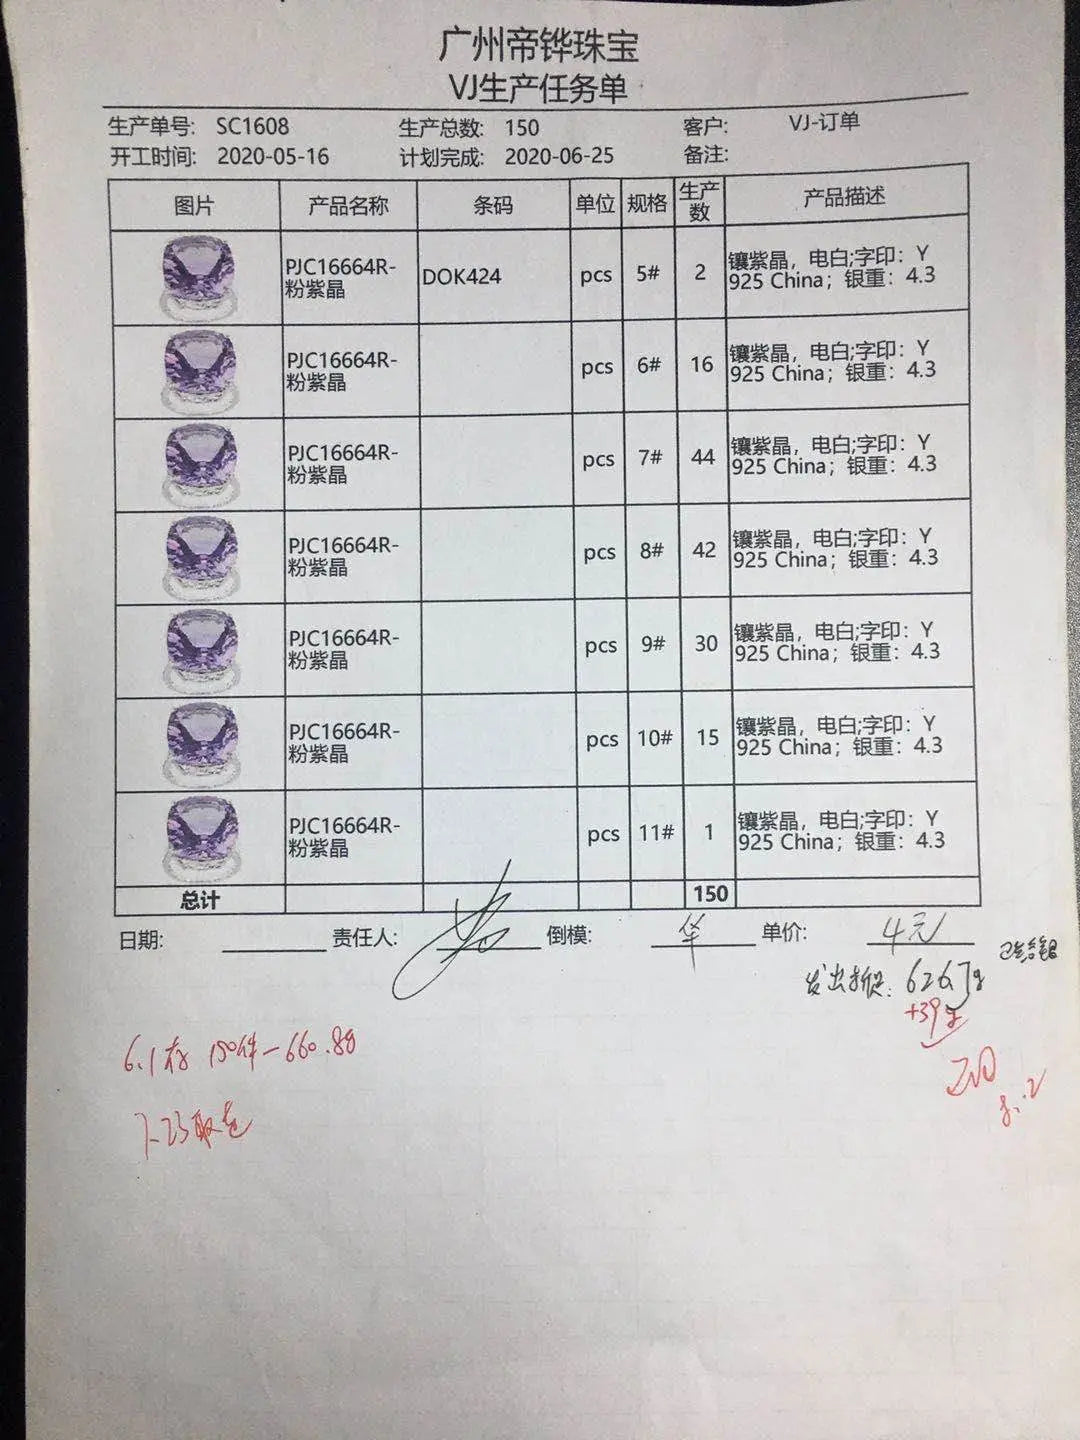 广州帝铧珠宝
VJ生产任务单
生产单号: SC1608 生产总数: 150 客户: VJ-订单
开工时间: 2020-05-16 计划完成: 2020-06-25 备注:
图片 产品名称 条码 单位 规格 生产数 产品描述
PJC16664R-
粉紫晶
DOK424 pcs 5# 2
镶紫晶，电白;字印：Y
925 China；银重：4.3
PJC16664R-
粉紫晶
pcs 6# 16
镶紫晶，电白;字印：Y
925 China；银重：4.3
PJC16664R-
粉紫晶
pcs 7# 44
镶紫晶，电白;字印：Y
925 China；银重：4.3
PJC16664R-
粉紫晶
pcs 8# 42
镶紫晶，电白;字印：Y
925 China；银重：4.3
PJC16664R-
粉紫晶
pcs 9# 30
镶紫晶，电白;字印：Y
925 China；银重：4.3
PJC16664R-
粉紫晶
pcs 10# 15
镶紫晶，电白;字印：Y
925 China；银重：4.3
PJC16664R-
粉紫晶
pcs 11# 1
镶紫晶，电白;字印：Y
925 China；银重：4.3
总计 150
日期: 责任人: 倒模: 华 单价: 4元
发出 626.7g
+39g
6.1存 150件-660.8g
7-23取走